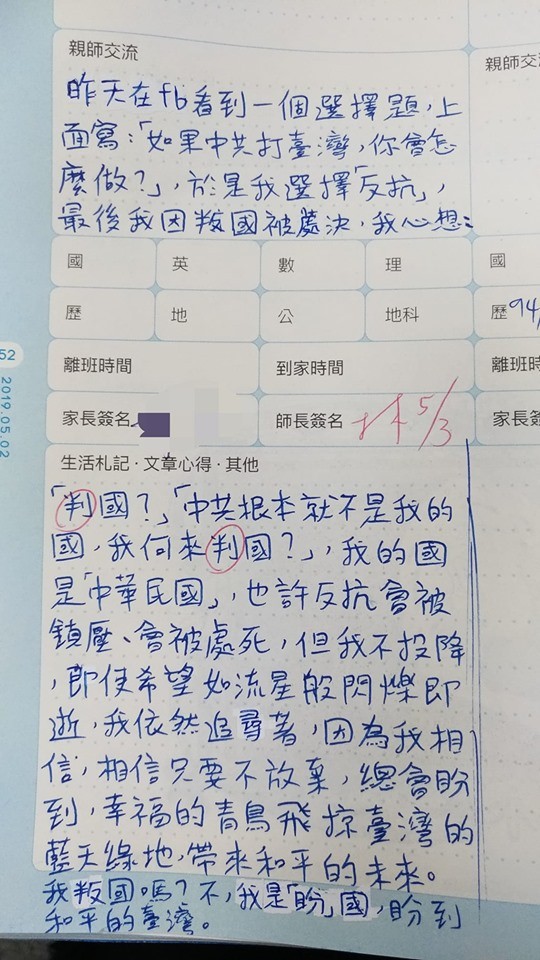 親師交流
親師交
昨天在fb看到一個選擇題,上
面寫:「如果中共打臺灣,你會怎
麼做?」,於是我選擇「反抗」,
最後我因叛國被處決,我心想:
國 英 數 理 國
歷 地 公 地科 歷94
離班時間 到家時間 離班時
家長簽名 師長簽名 5/3 家長簽
52
2019.05.02
生活札記·文章心得·其他
「判國?」「中共根本就不是我的
國,我何來判國?」,我的國
是「中華民國」,也許反抗會被
鎮壓、會被處死,但我不投降
,即使希望如流星般閃爍即
逝,我依然追尋著,因為我相
信,相信只要不放棄,總會盼
到,幸福的青鳥飛掠臺灣的
藍天綠地,帶來和平的未來。
我叛國嗎?不,我是「盼」國,盼到
和平的臺灣。